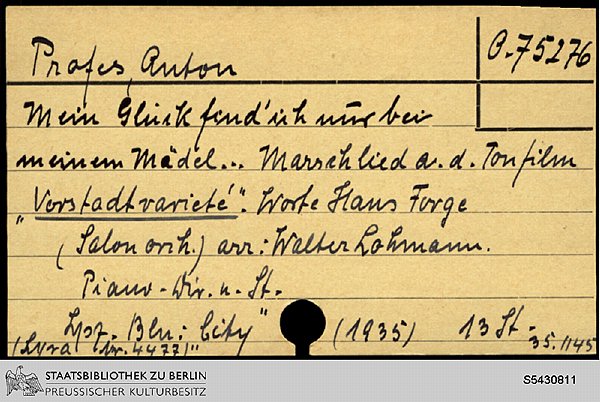 Profes, Anton
O. 75276
Mein Glück find' ich nur bei
meinem Mädel... Marschlied a. d. Tonfilm
"Vorstadtvarieté". Worte Hans Forge
(Salonorch.) arr: Walter Lohmann.
Piano-Dir. u. St.
Lpz. Bln: "City" (1935) 13 St.
(Lyra Nr. 4477)"
35. 1145
STAATSBIBLIOTHEK ZU BERLIN
PREUSSISCHER KULTURBESITZ
S5430811